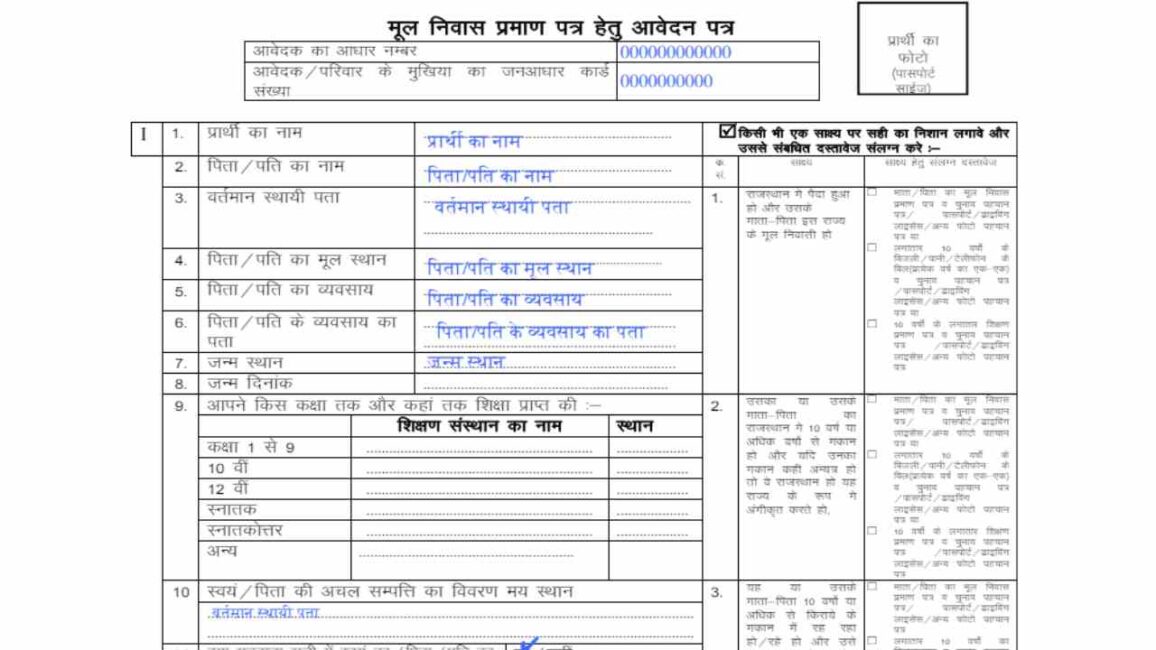 मूल निवास प्रमाण पत्र हेतु आवेदन पत्र
प्रार्थी का
फोटो
(पासपोर्ट
साईज)
आवेदक का आधार नम्बर 000000000000
आवेदक/परिवार के मुखिया का जनआधार कार्ड
संख्या 0000000000
I 1. प्रार्थी का नाम प्रार्थी का नाम
2. पिता/पति का नाम पिता/पति का नाम
3. वर्तमान स्थायी पता वर्तमान स्थायी पता
4. पिता/पति का मूल स्थान पिता/पति का मूल स्थान
5. पिता/पति का व्यवसाय पिता/पति का व्यवसाय
6. पिता/पति के व्यवसाय का
पता पिता/पति के व्यवसाय का पता
7. जन्म स्थान जन्म स्थान
8. जन्म दिनांक
9. आपने किस कक्षा तक और कहां तक शिक्षा प्राप्त की :–
शिक्षण संस्थान का नाम स्थान
कक्षा 1 से 9
10 वीं
12 वीं
स्नातक
स्नातकोत्तर
अन्य
10 स्वयं/पिता की अचल सम्पत्ति का विवरण मय स्थान
वर्तमान स्थायी पता
किसी भी एक साक्ष्य पर सही का निशान लगावे और
उससे संबधित दस्तावेज संलग्न करे :–
क्र. साक्ष्य साक्ष्य हेतु संलग्न दस्तावेज
सं.
1. राजस्थान में पैदा हुआ
हो और उसके
माता–पिता इस राज्य
के मूल निवासी हो
माता/पिता का मूल निवास
प्रमाण पत्र व चुनाव पहचान
पत्र/ पासपोर्ट/ड्राइविंग
लाइसेंस/अन्य फोटो पहचान
पत्र या
लगातार 10 वर्षो के
बिजली/पानी/टेलीफोन के
बिल(प्रत्येक वर्ष का एक–एक)
व चुनाव पहचान पत्र
/पासपोर्ट/ड्राइविंग
लाइसेंस/अन्य फोटो पहचान
पत्र या
10 वर्षो के लगातार शिक्षण
प्रमाण पत्र व चुनाव पहचान
पत्र /पासपोर्ट/ड्राइविंग
लाइसेंस/अन्य फोटो पहचान
पत्र
2. उसका या उसके
माता–पिता का
राजस्थान में 10 वर्ष या
अधिक वर्षो से मकान
हो और यदि उनका
मकान कही अन्यत्र हो
तो वे राजस्थान हो यह
राज्य के रूप में
अंगीकृत करते हो,
माता/पिता का मूल निवास
प्रमाण पत्र व चुनाव पहचान
पत्र/ पासपोर्ट/ड्राइविंग
लाइसेंस/अन्य फोटो पहचान
पत्र या
लगातार 10 वर्षो के
बिजली/पानी/टेलीफोन के
बिल(प्रत्येक वर्ष का एक–एक)
व चुनाव पहचान पत्र
/पासपोर्ट/ड्राइविंग
लाइसेंस/अन्य फोटो पहचान
पत्र या
10 वर्षो के लगातार शिक्षण
प्रमाण पत्र व चुनाव पहचान
पत्र /पासपोर्ट/ड्राइविंग
लाइसेंस/अन्य फोटो पहचान
पत्र
3. यह या उसके
माता–पिता 10 वर्षो या
अधिक से किराये के
मकान में रह रहा
हो/रहे हो और उसे
माता/पिता का मूल निवास
प्रमाण पत्र व चुनाव पहचान
पत्र/ पासपोर्ट/ड्राइविंग
लाइसेंस/अन्य फोटो पहचान
पत्र
लगातार 10 वर्षो का